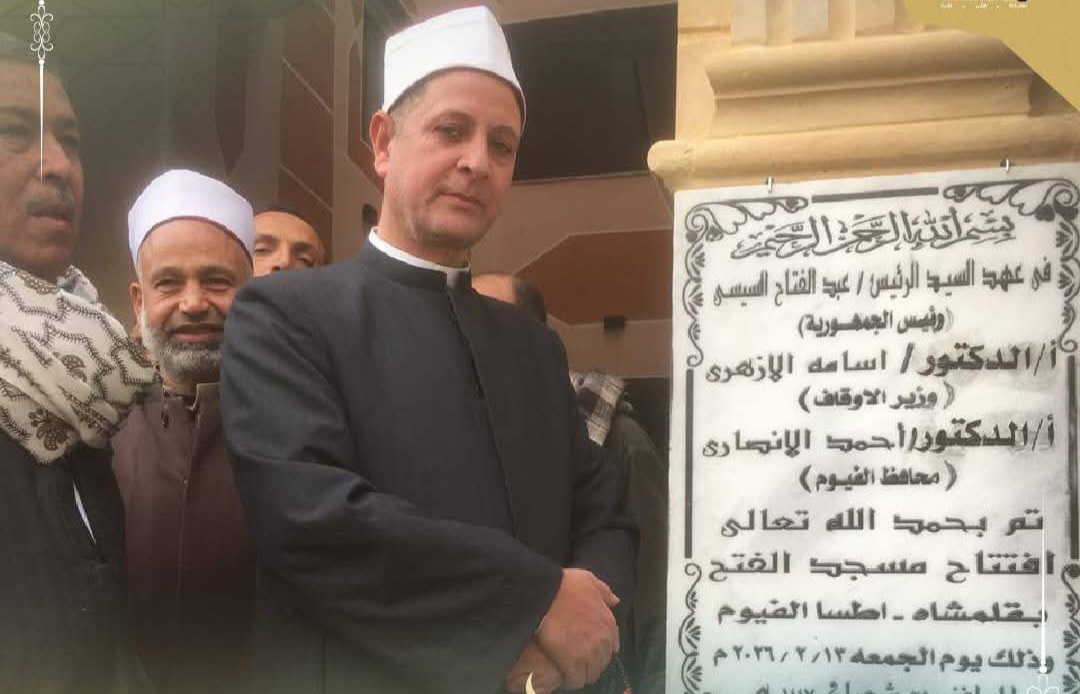 بسم الله الرحمن الرحيم
فى عهد السيد الرئيس / عبد الفتاح السيسى
(رئيس الجمهورية)
أ/الدكتور / اسامه الازهرى
(وزير الاوقاف)
أ/الدكتور/أحمد الانصارى
(محافظ الفيوم)
تم بحمد الله تعالى
افتتاح مسجد الفتح
بقلمشاه - اطسا الفيوم
وذلك يوم الجمعه ٢٠٢٦/٢/١٣ م